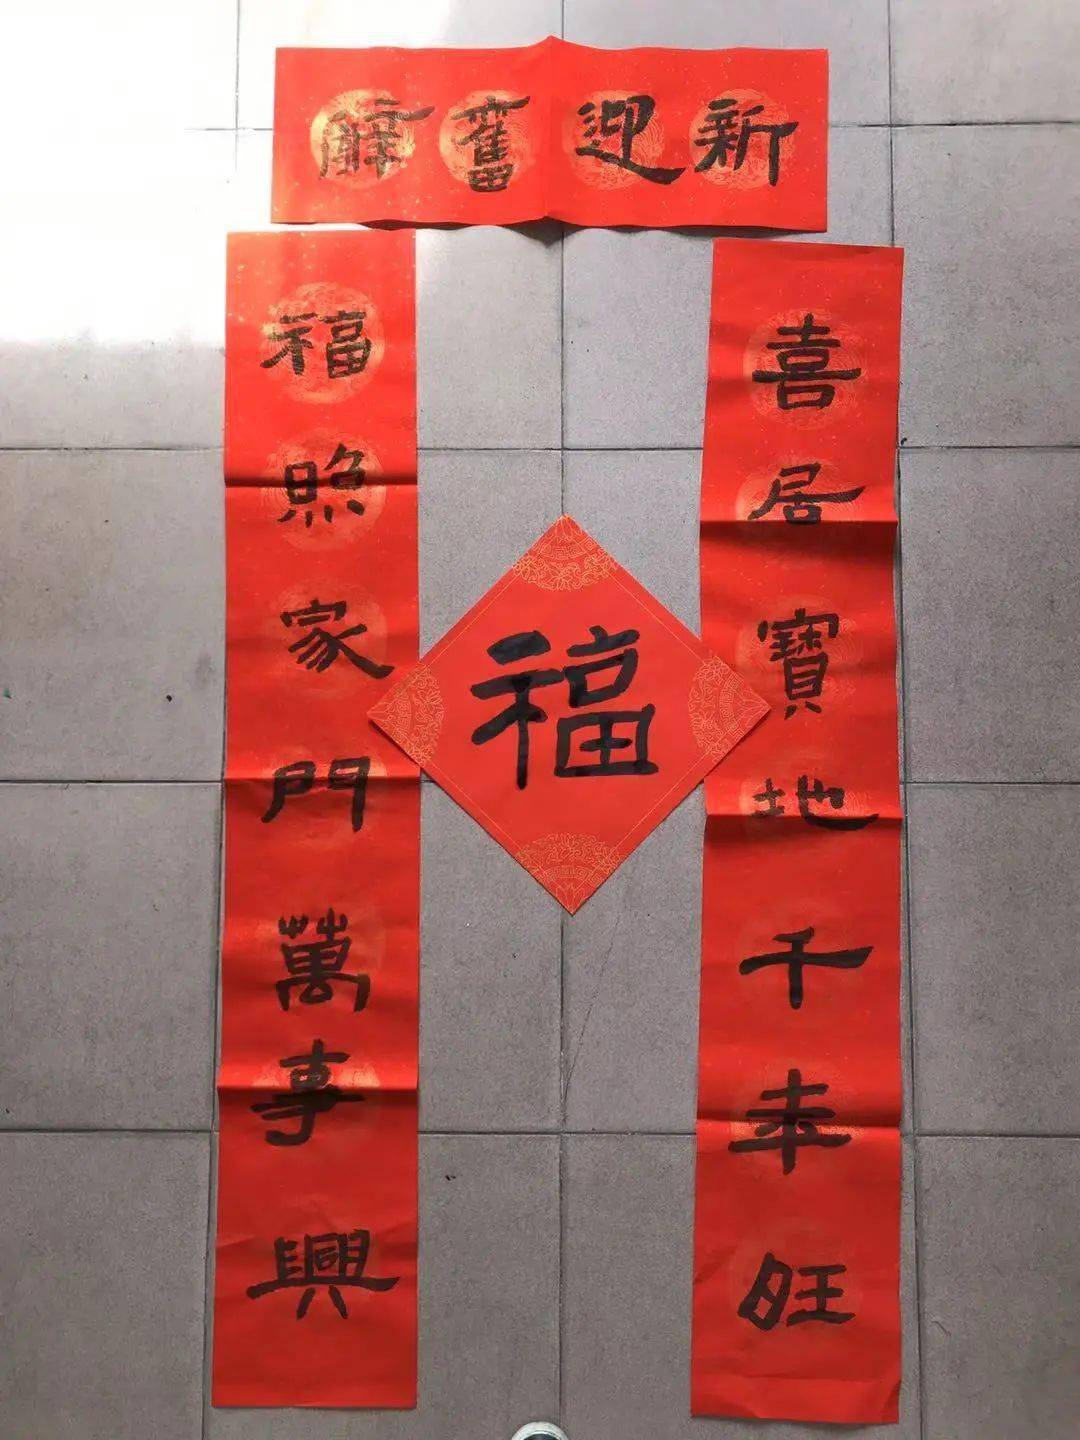 辭舊迎新
喜居寶地千年旺
福照家門萬事興
福